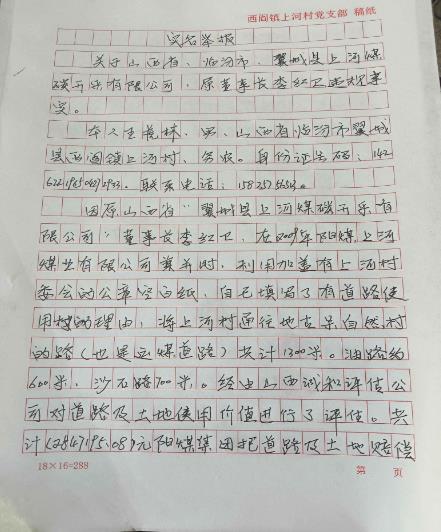 西阎镇上河村党支部 稿纸
实名举报
关于山西省、临汾市、翼城县上河煤
炭开采有限公司,原董事长李红卫违规事
实。
本人 男、山西省临汾市翼城
县西阎镇上河村、务农。身份证号码:
联系电话:
因原山西省"翼城县上河煤炭开采有
限公司"董事长李红卫,在2009年阳煤上河
煤业有限公司兼并时,利用加盖有上河村
委会的公章空白纸,自己填写了有道路使
用 的理由,将上河村通往地 自然村
的路(也是运煤道路)共计1300米。油路约
600米,沙石路700米。经由山西诚和评估公
司对道路及土地使用价值进行了评估。共
计(2847195.08)元阳煤集团把道路及土地赔偿
18×16=288
第 页